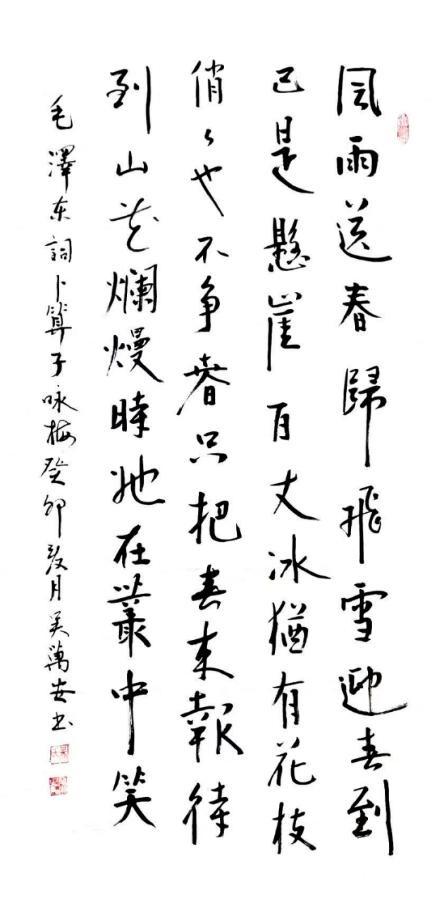 風雨送春歸飛雪迎春到
已是懸崖百丈冰猶有花枝
俏々也不争春只把春来報待
到山花爛熳時她在叢中笑
毛澤东詞卜算子咏梅癸卯月吴萬安书